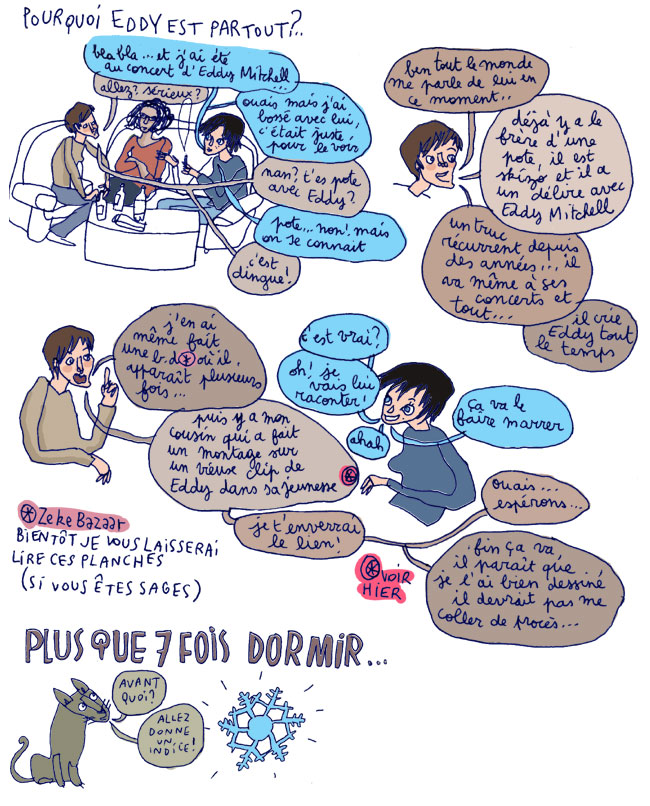 POURQUOI EDDY EST PARTOUT?..
bla bla... et j'ai été
au concert d'Eddy Mitchell
allez? sérieux?
ouais mais j'ai
bossé avec lui,
c'était juste
pour le voir
nan? t'es pote
avec Eddy?
pote... non! mais
on se connait
c'est
dingue!
ben tout le monde
me parle de lui en
ce moment...
déjà y a le
frère d'une
pote, il est
skizo et il a
un délire avec
Eddy Mitchell
un truc
récurrent depuis
des années... il
va même à ses
concerts et
tout...
il crie
Eddy tout
le temps
j'en ai
même fait
une b.d* où il
apparaît plusieurs
fois...
puis y a mon
cousin qui a fait
un montage sur
un vieux clip de
Eddy dans sa jeunesse *
je t'enverrai
le lien!
c'est vrai?
oh! je
vais lui
raconter!
ahah
ça va le
faire marrer
ouais....
espérons...
fin ça va,
il paraît que
je l'ai bien dessiné
il devrait pas me
coller de procès...
* Zeke Bazaar
BIENTÔT JE VOUS LAISSERAI
LIRE CES PLANCHES
(SI VOUS ÊTES SAGES)
* VOIR
HIER
PLUS QUE 7 FOIS DORMIR...
AVANT
QUOI?
ALLEZ
DONNE
UN
INDICE!